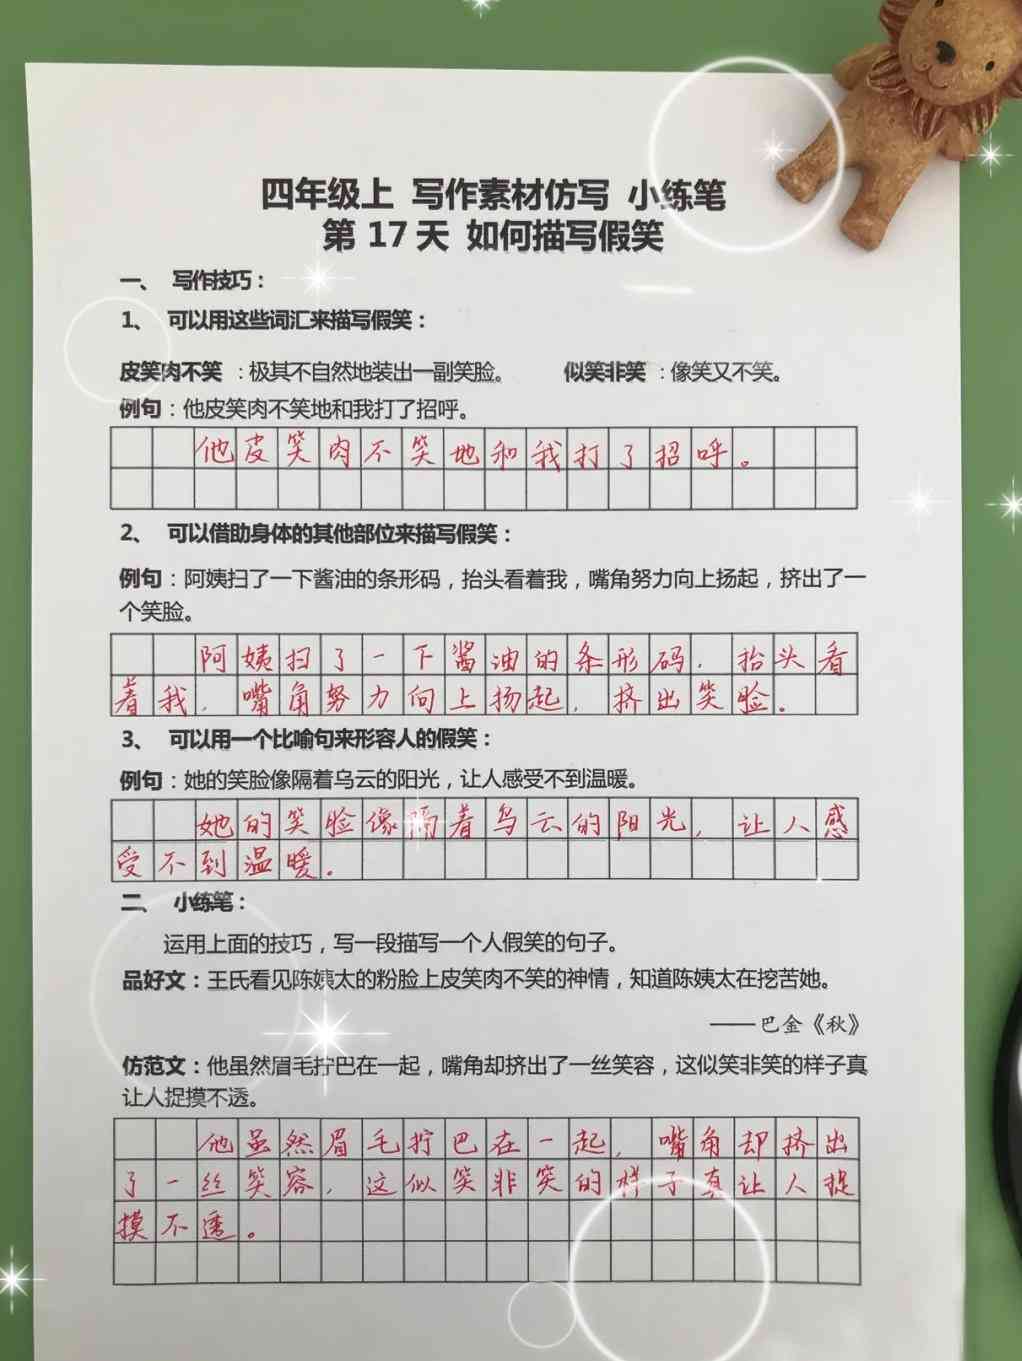 四年级上 写作素材仿写 小练笔
第 17 天 如何描写假笑
一、 写作技巧：
1、 可以用这些词汇来描写假笑：
皮笑肉不笑 ：极其不自然地装出一副笑脸。 似笑非笑 ：像笑又不笑。
例句：他皮笑肉不笑地和我打了招呼。
他皮笑肉不笑地和我打了招呼。
2、 可以借助身体的其他部位来描写假笑：
例句：阿姨扫了一下酱油的条形码，抬头看着我，嘴角努力向上扬起，挤出了一
个笑脸。
阿姨扫了一下酱油的条形码，抬头看
着我，嘴角努力向上扬起，挤出笑脸。
3、 可以用一个比喻句来形容人的假笑：
例句：她的笑脸像隔着乌云的阳光，让人感受不到温暖。
她的笑脸像隔着乌云的阳光，让人感
受不到温暖。
二、 小练笔：
运用上面的技巧，写一段描写一个人假笑的句子。
品好文：王氏看见陈姨太的粉脸上皮笑肉不笑的神情，知道陈姨太在挖苦她。
——巴金《秋》
仿范文：他虽然眉毛拧巴在一起，嘴角却挤出了一丝笑容，这似笑非笑的样子真
让人捉摸不透。
他虽然眉毛拧巴在一起，嘴角却挤出
了一丝笑容，这似笑非笑的样子真让人捉
摸不透。